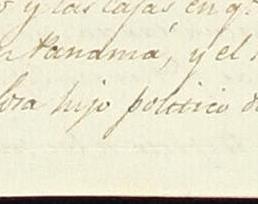 y las cajas en q
Panamá, y el
hijo politico d